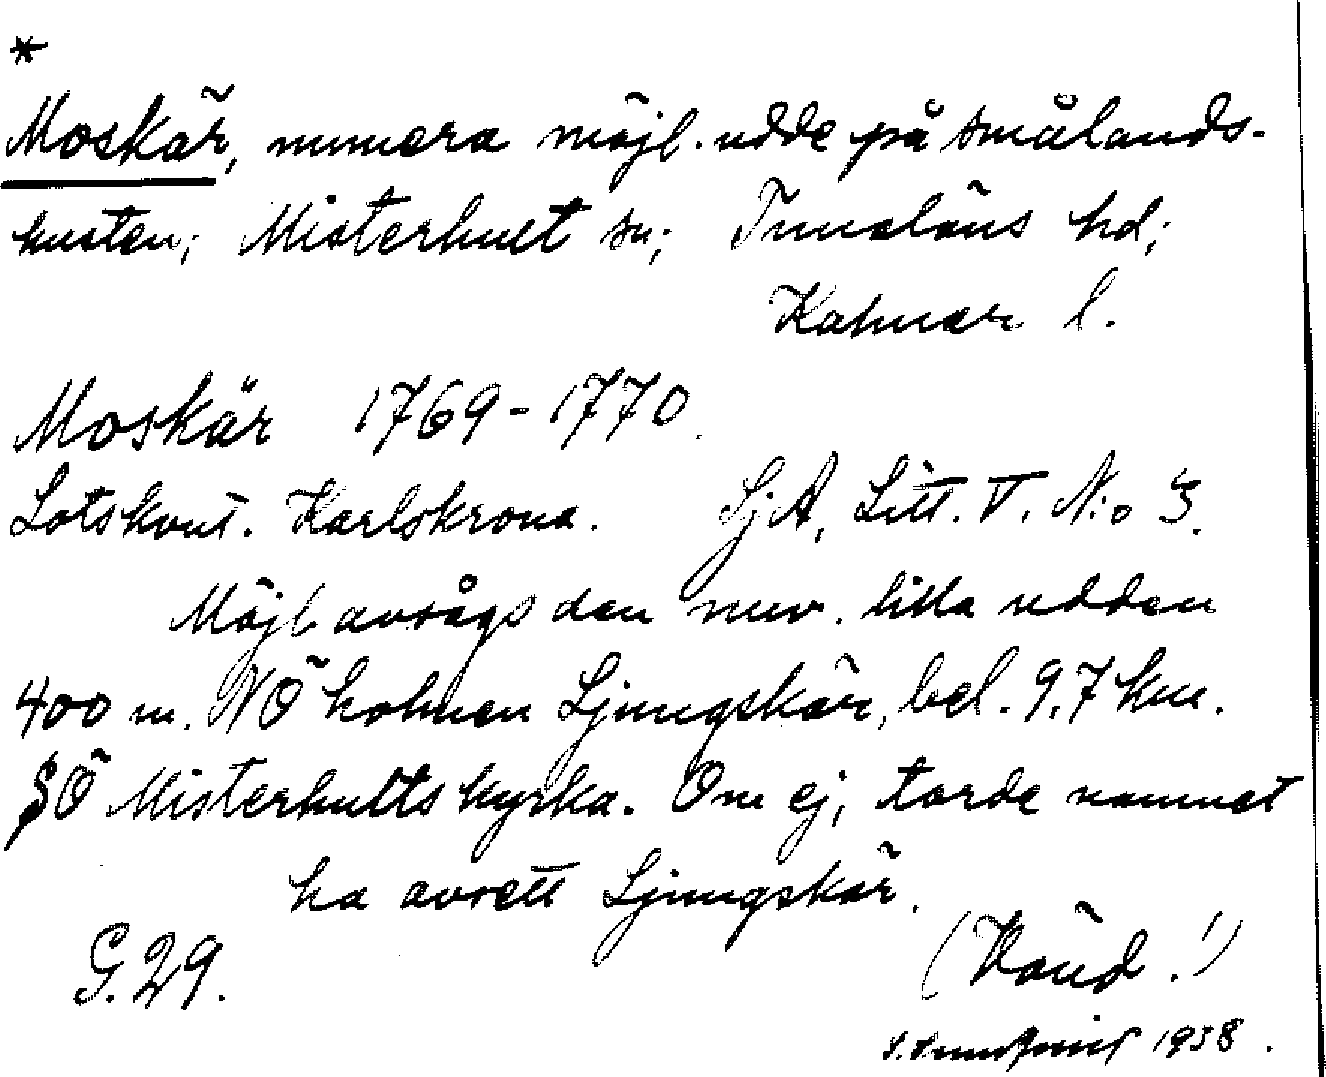 *
Moskär, numera möjl. udde på smålands-
kusten; Misterhult sn; Tunaläns hd;
Kalmar l.
Moskär 1769-1770.
Lotskont. Karlskrona. SjA, Litt. V. N:o 3.
Möjl. avsågs den nuv. lilla udden
400 m. NÖ holmen Ljungskär, bel. 9,7 km.
SÖ Misterhults kyrka. Om ej, torde namnet
ha avsett Ljungskär.
G. 29. (Vänd!)
1938.